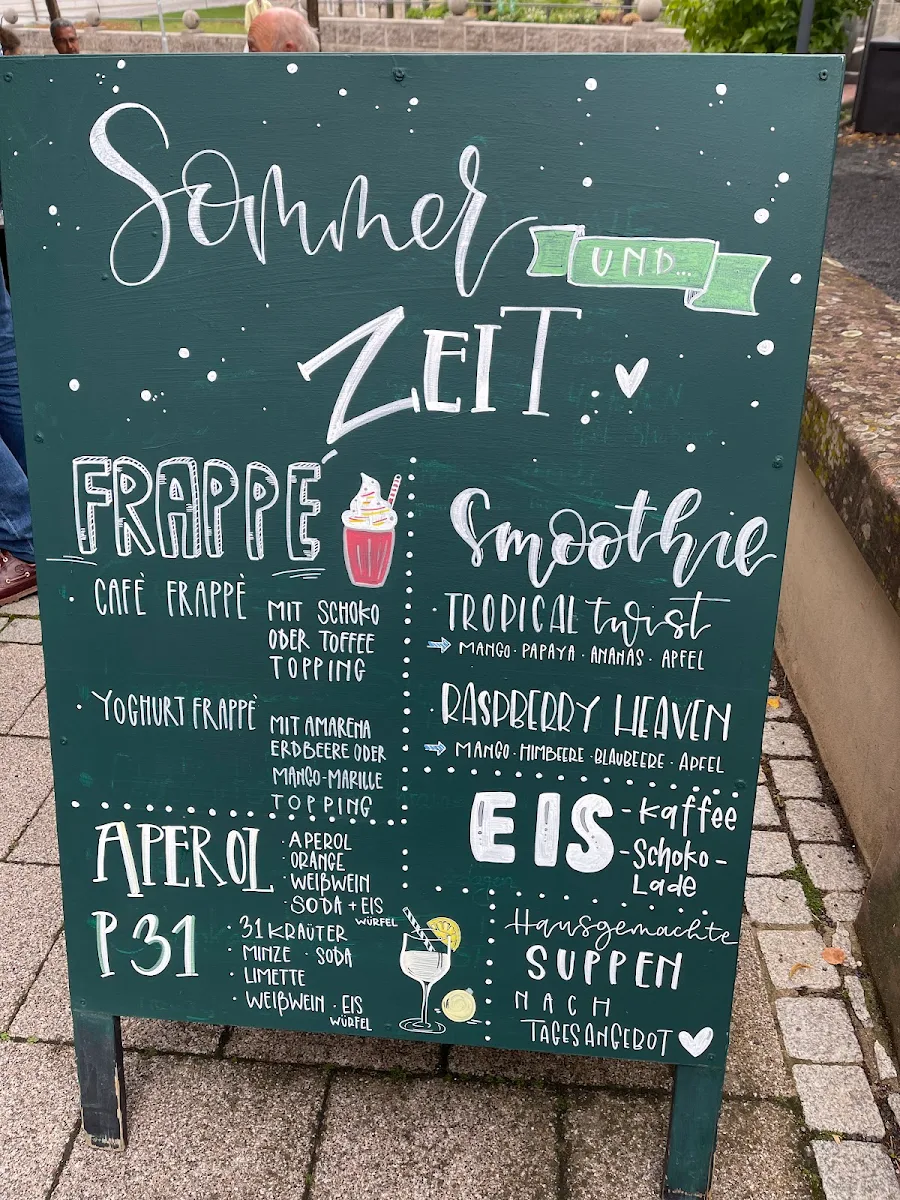 Sommer
UND...
ZEIT
FRAPPÉ
· CAFÈ FRAPPÈ
MIT SCHOKO
ODER TOFFEE
TOPPING
· YOGHURT FRAPPÈ
MIT AMARENA
ERDBEERE ODER
MANGO-MARILLE
TOPPING
Smoothie
· TROPICAL twist
MANGO · PAPAYA · ANANAS · APFEL
· RASPBERRY HEAVEN
MANGO · HIMBEERE · BLAUBEERE · APFEL
APEROL
· APEROL
· ORANGE
· WEIßWEIN
· SODA + EIS
WÜRFEL
P31
· 31 KRÄUTER
· MINZE · SODA
· LIMETTE
· WEIßWEIN · EIS
WÜRFEL
EIS
- Kaffee
- Schoko-
Lade
Hausgemachte
SUPPEN
NACH
TAGESANGEBOT